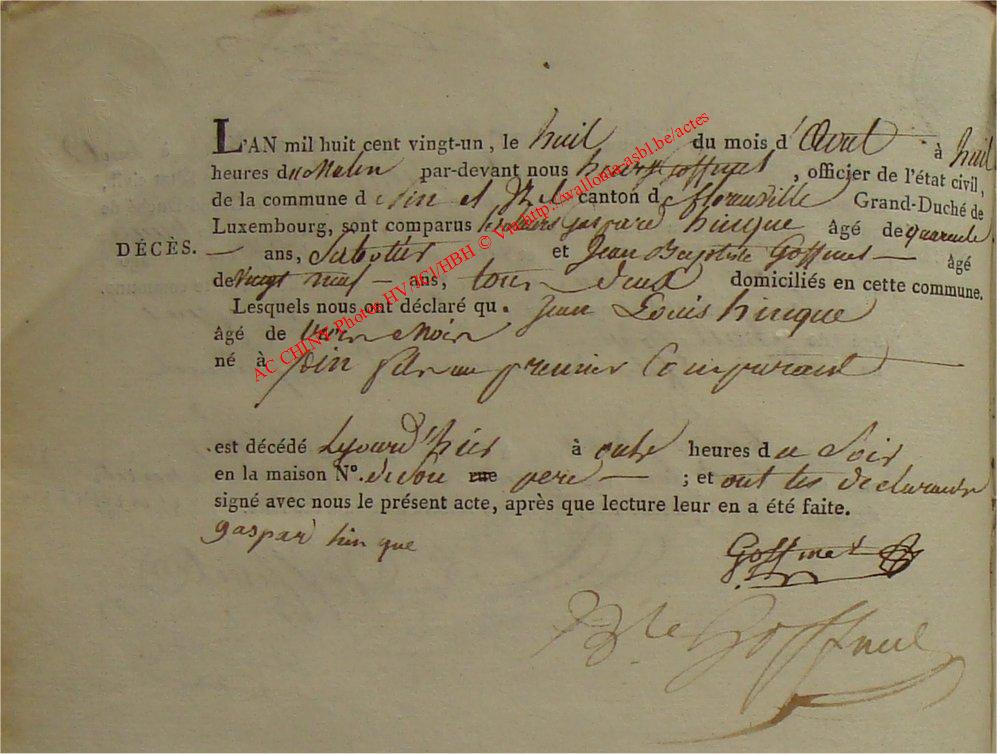 L'AN mil huit cent vingt-un, le huit du mois d'Avril à huit
heures du Matin par-devant nous Goffinet, officier de l'état civil,
de la commune d et canton de florenville Grand-Duché de
Luxembourg, sont comparus gaspard hinque âgé de quarante
DÉCÈS. — ans, Sabotier et Jean Baptiste Goffinet — âgé
de vingt neuf — ans, tous deux domiciliés en cette commune.
Lesquels nous ont déclaré qu. Jean Louis hinque
âgé de trois Mois
né à fils au premier Comparant
est décédé le jour d'hier à onze heures du Soir
en la maison N°. de son rue pere — ; et ont les declarants
signé avec nous le présent acte, après que lecture leur en a été faite.
gaspard hinque
Goffinet
Goffinet
AC CHINY Photos HV/ACI/HBH © Via http://wallonia.asbl.be/actes